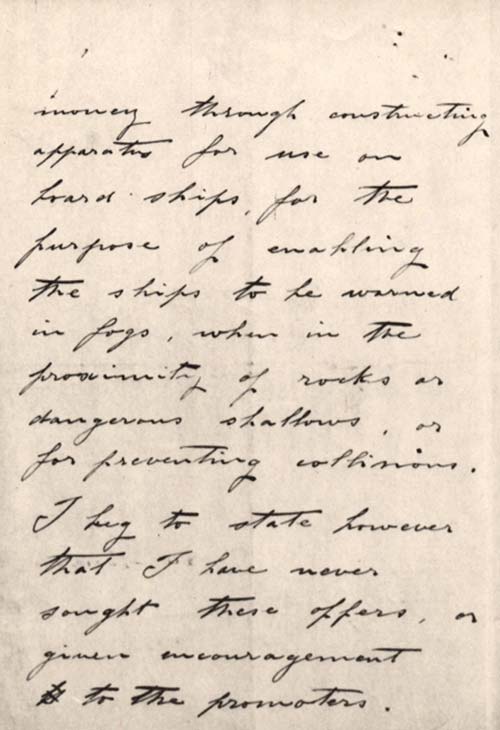 money through constructing
apparatus for use on
board ships, for the
purpose of enabling
the ships to be warned
in fogs, when in the
proximity of rocks or
dangerous shallows, or
for preventing collisions.
I beg to state however
that I have never
sought these offers, or
given encouragement
to the promoters.